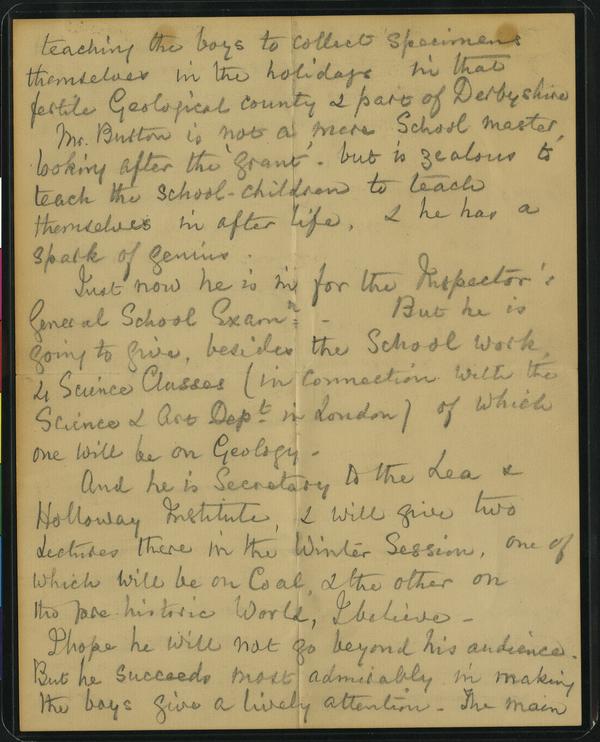 teaching the boys to collect specimens
themselves in the holidays in that
fertile Geological county & part of Derbyshire
Mr. Burton is not a mere School master,
looking after the 'grant'. but is zealous to
teach the School-children to teach
themselves in after life, & he has a
spark of genius.
Just now he is in for the Inspector's
General School Examn: - But he is
going to give, besides the School work,
4 Science Classes (in connection with the
Science & Art Dept. in London) of which
one will be on Geology -
And he is Secretary to the Lea &
Holloway Institute, & will give two
Lectures there in the Winter Session, one of
which will be on Coal, & the other on
the pre-historic World, I believe -
I hope he will not go beyond his audience.
But he succeeds most admirably in making
the boys give a lively attention - The main